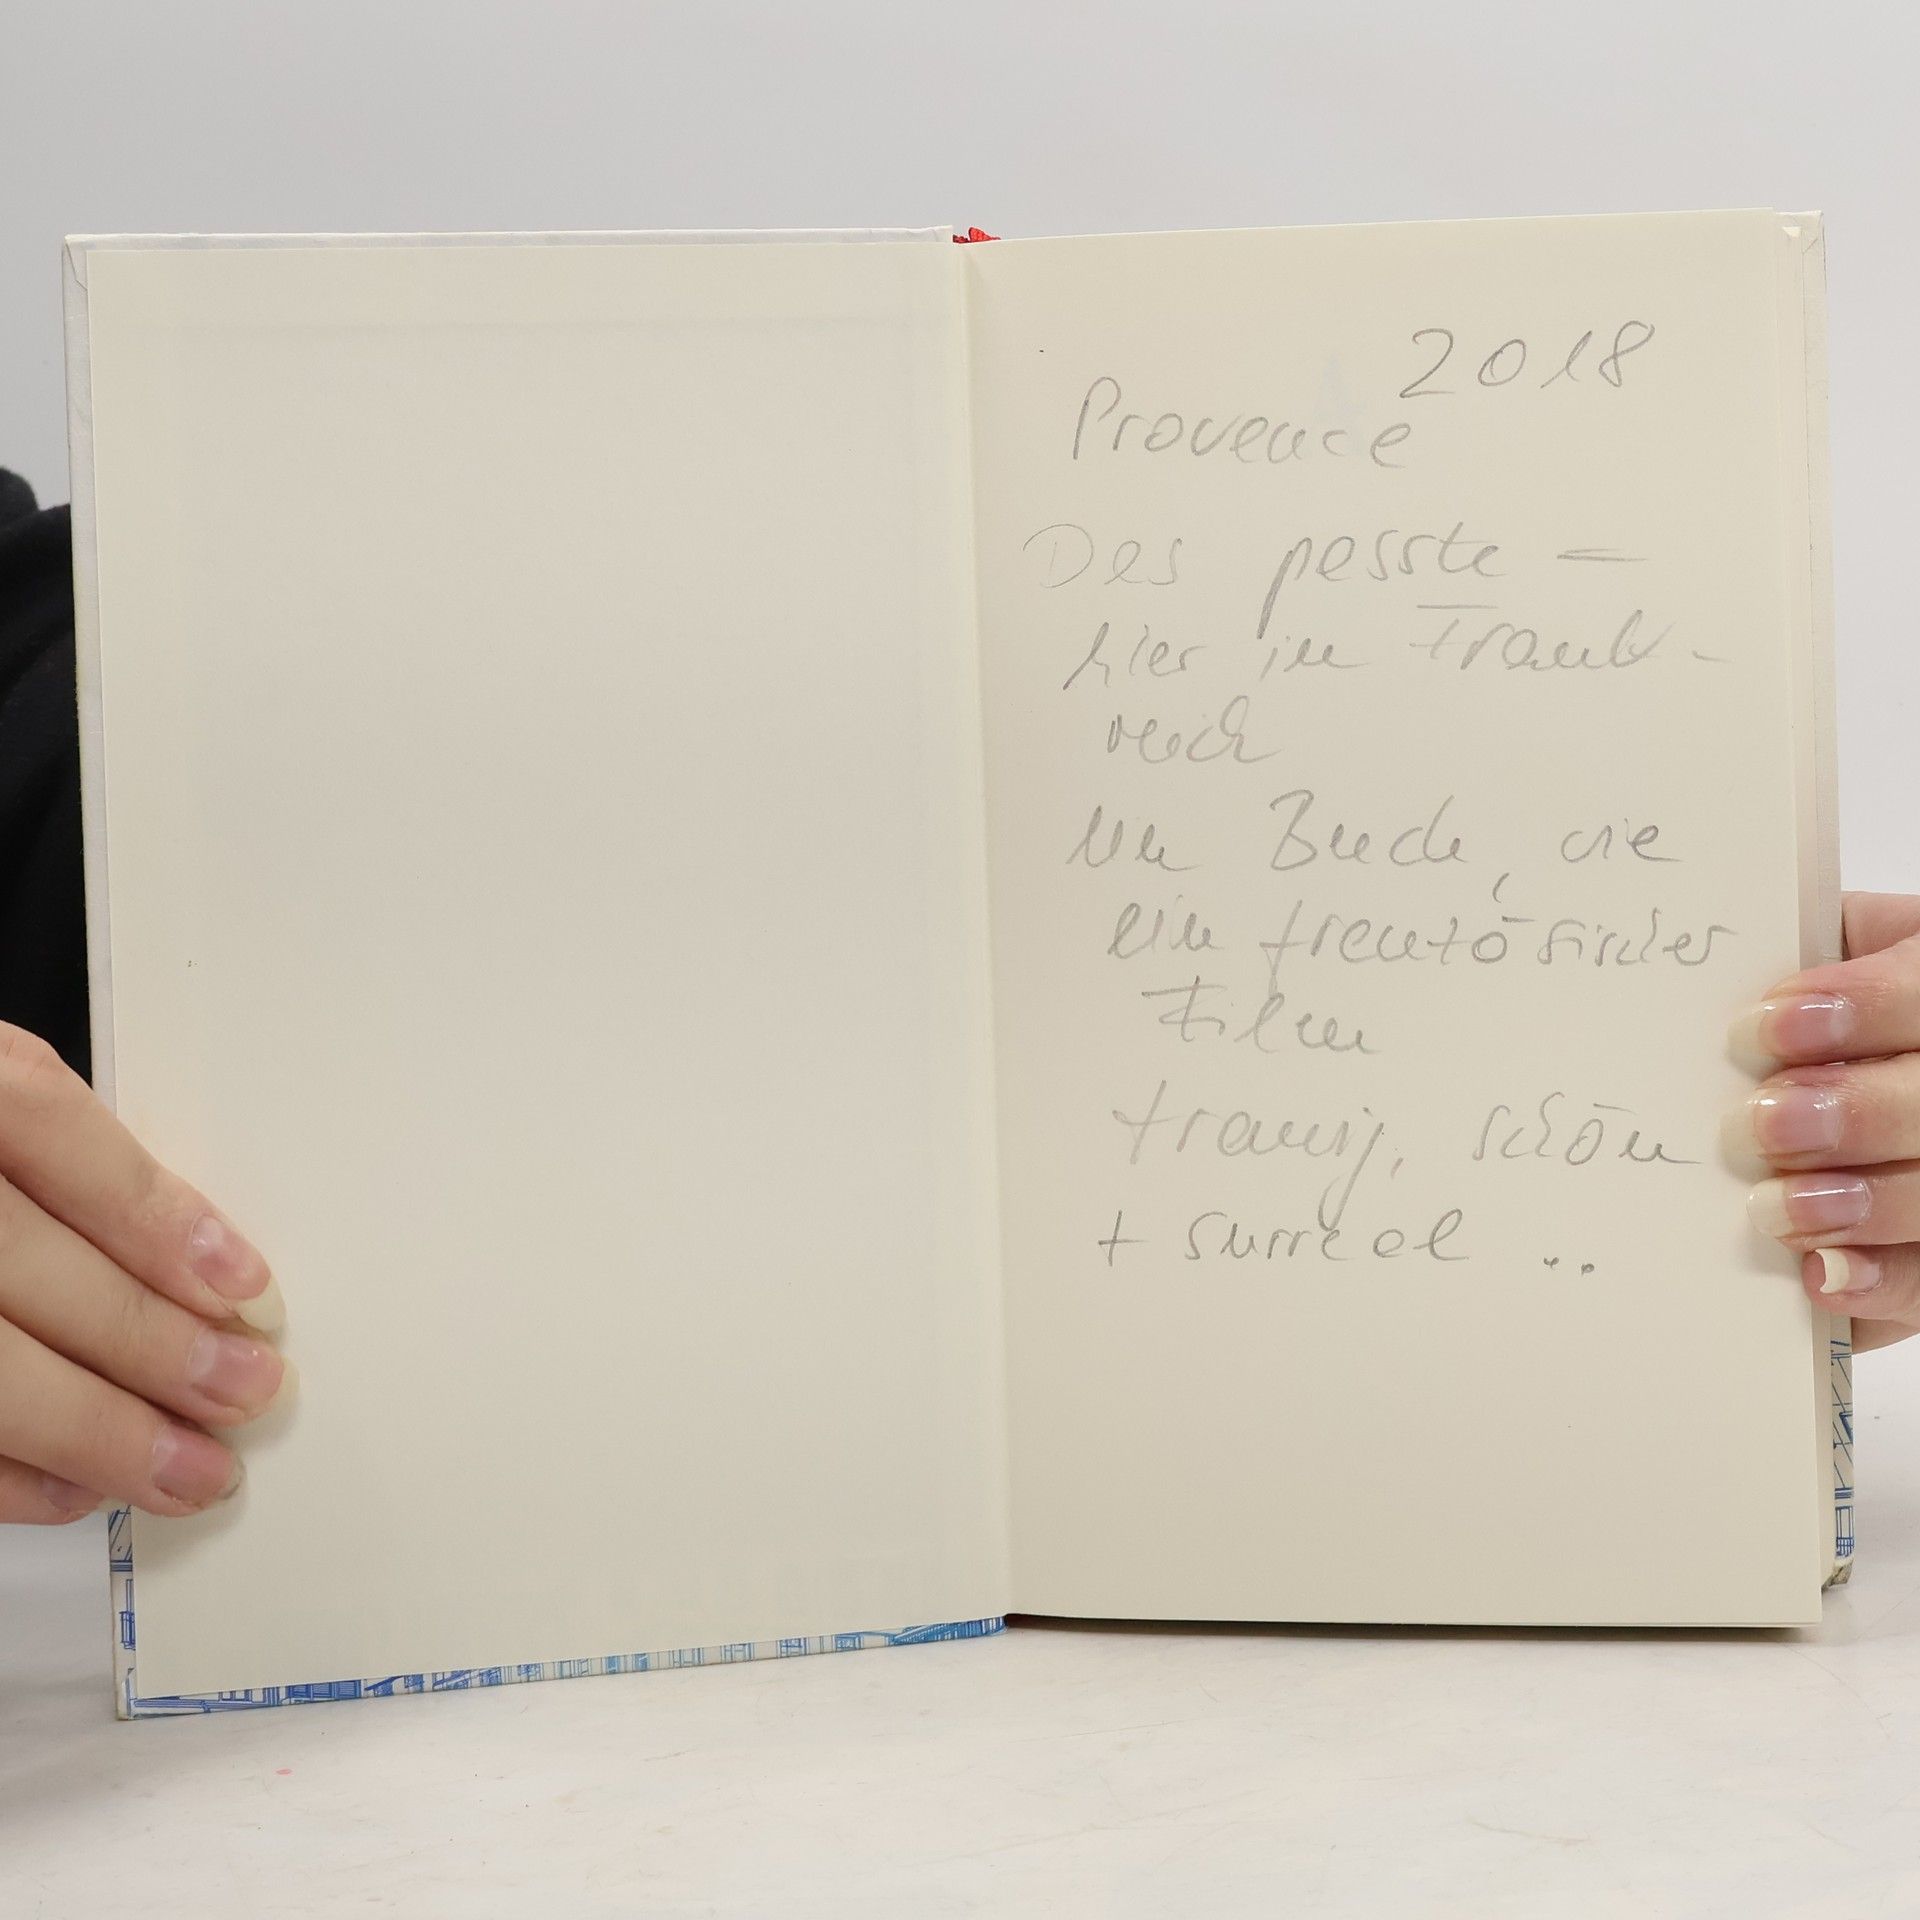 2018
Provence
Das passte –
hier in Frank-
reich
Ein Buch, wie
ein französischer
Film
traurig, schön
+ surreal ..